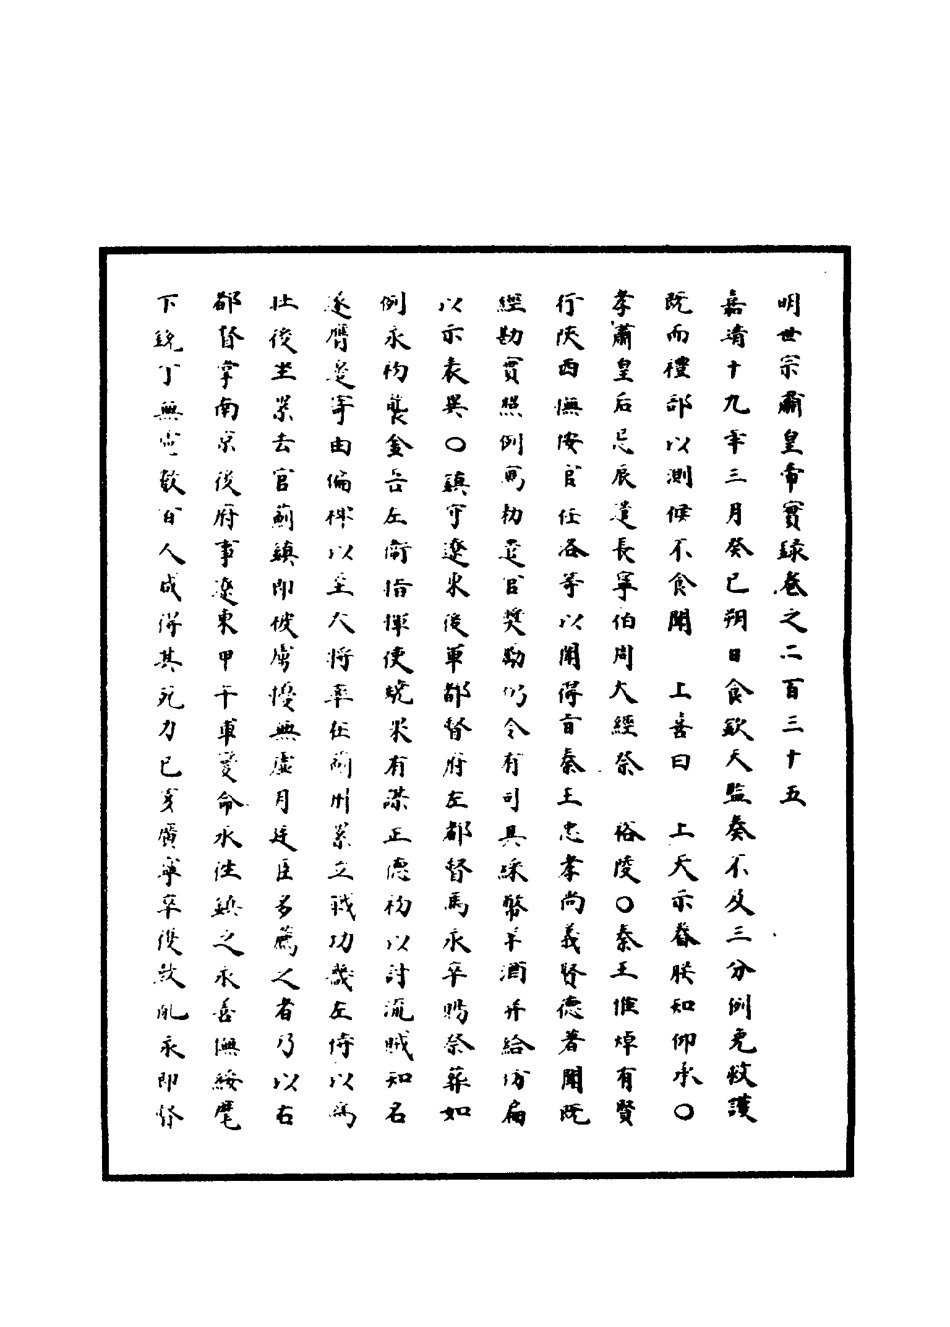 明世宗肅皇帝實錄卷之二百三十五
嘉靖十九年三月癸巳朔日食欽天監奏不及三分例免救護
既而禮部以測候不食聞　上喜曰　上天示眷朕知仰承〇
孝肅皇后忌辰遣長寧伯周大經祭　裕陵〇秦王惟焯有賢
行陝西撫按官任洛等以聞得旨秦王忠孝尚義賢德著聞既
經勘實照例寫勑遣官獎勵仍令有司具綵幣羊酒并給坊扁
以示表異〇鎮守遼東後軍都督府左都督馬永卒賜祭葬如
例永初襲金吾左衛指揮使驍果有謀正德初以討流賊知名
遂膺邊寄由偏裨以至大將率在薊州累立戰功嘉左侍以為
壯後坐累去官薊鎮即被虜擾無虛月廷臣多薦之者乃以右
都督掌南京後府事遼東甲干軍變命永往鎮之永善撫綏麾
下銳丁無慮數百人咸得其死力已亥廣寧卒復鼓亂永即督